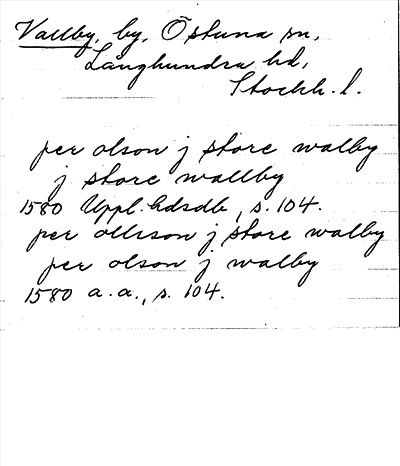 Vallby, by, Östuna sn,
Långhundra hd,
Stockh. l.
per olson j store walby
j store wallby
1580 Uppl. hdsdb, s. 104.
per ollsson j store walby
per olson j walby
1580 a. a., s. 104.